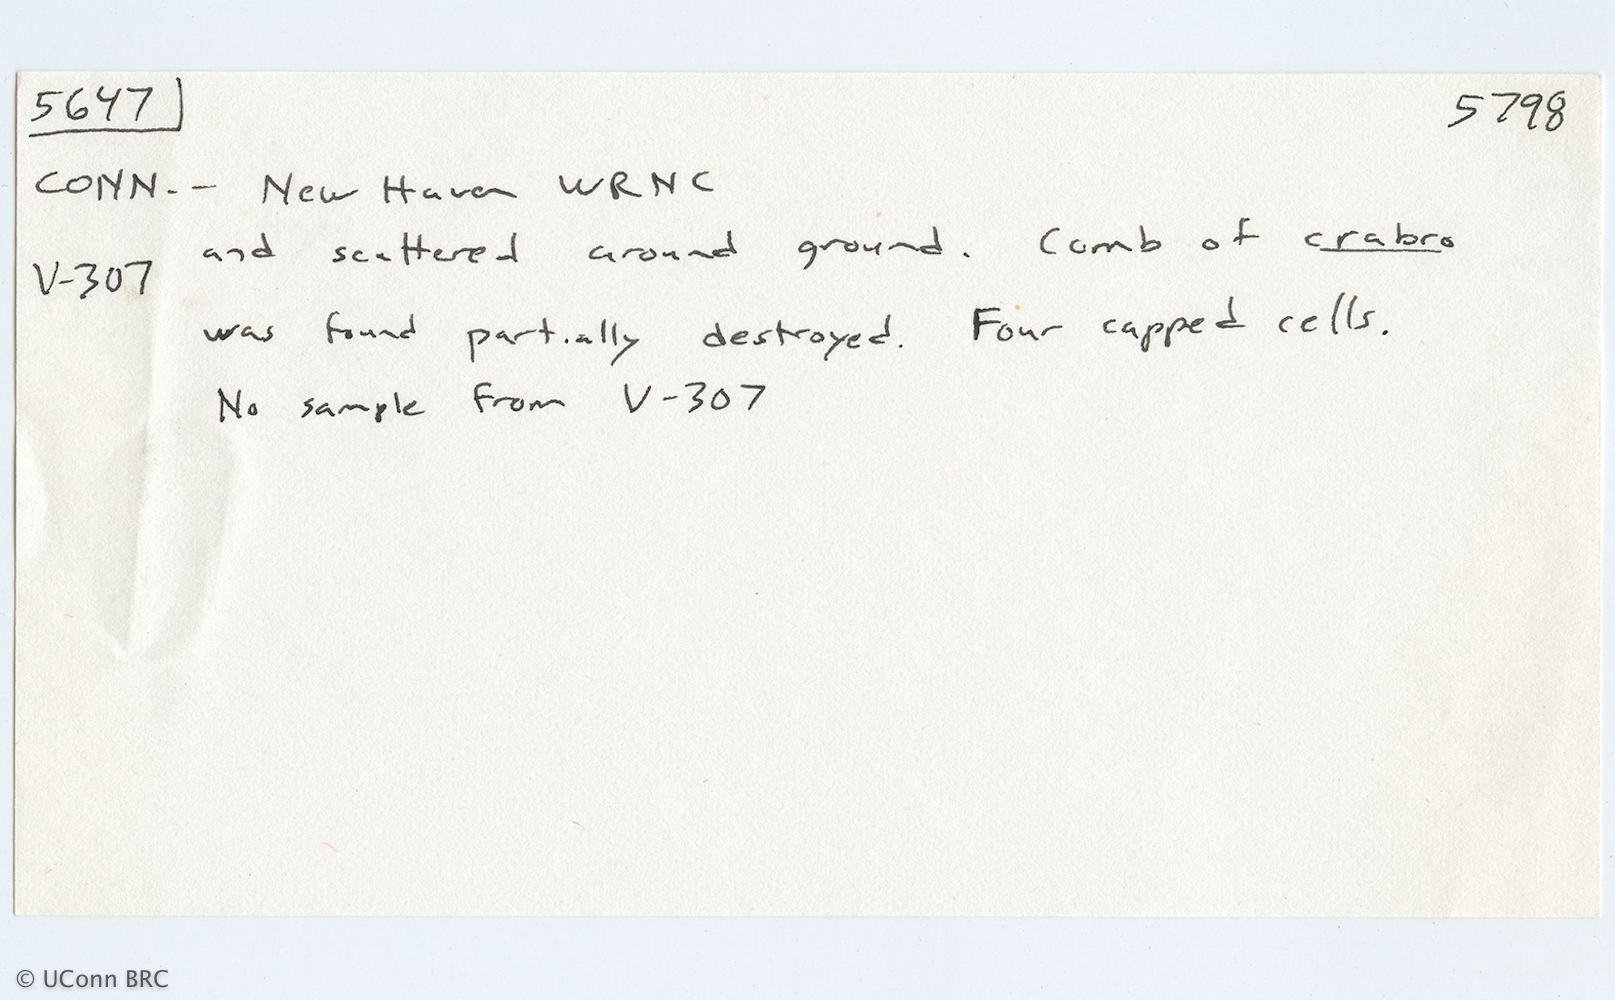 5647
5798
CONN.- New Haven WRNC
and scattered around ground. Comb of crabro
V-307
was found partially destroyed. Four capped cells.
No sample from V-307
© UConn BRC